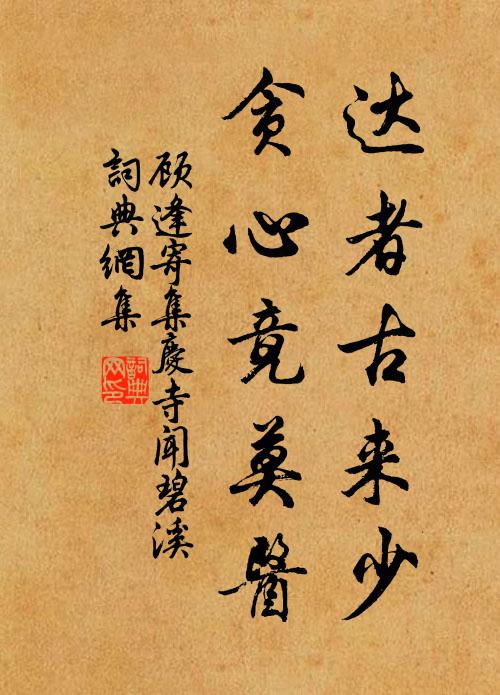 达者古来少
贪心竟莫醫
顾逢寄集慶寺闻碧溪
詞典網集
詞典
网印